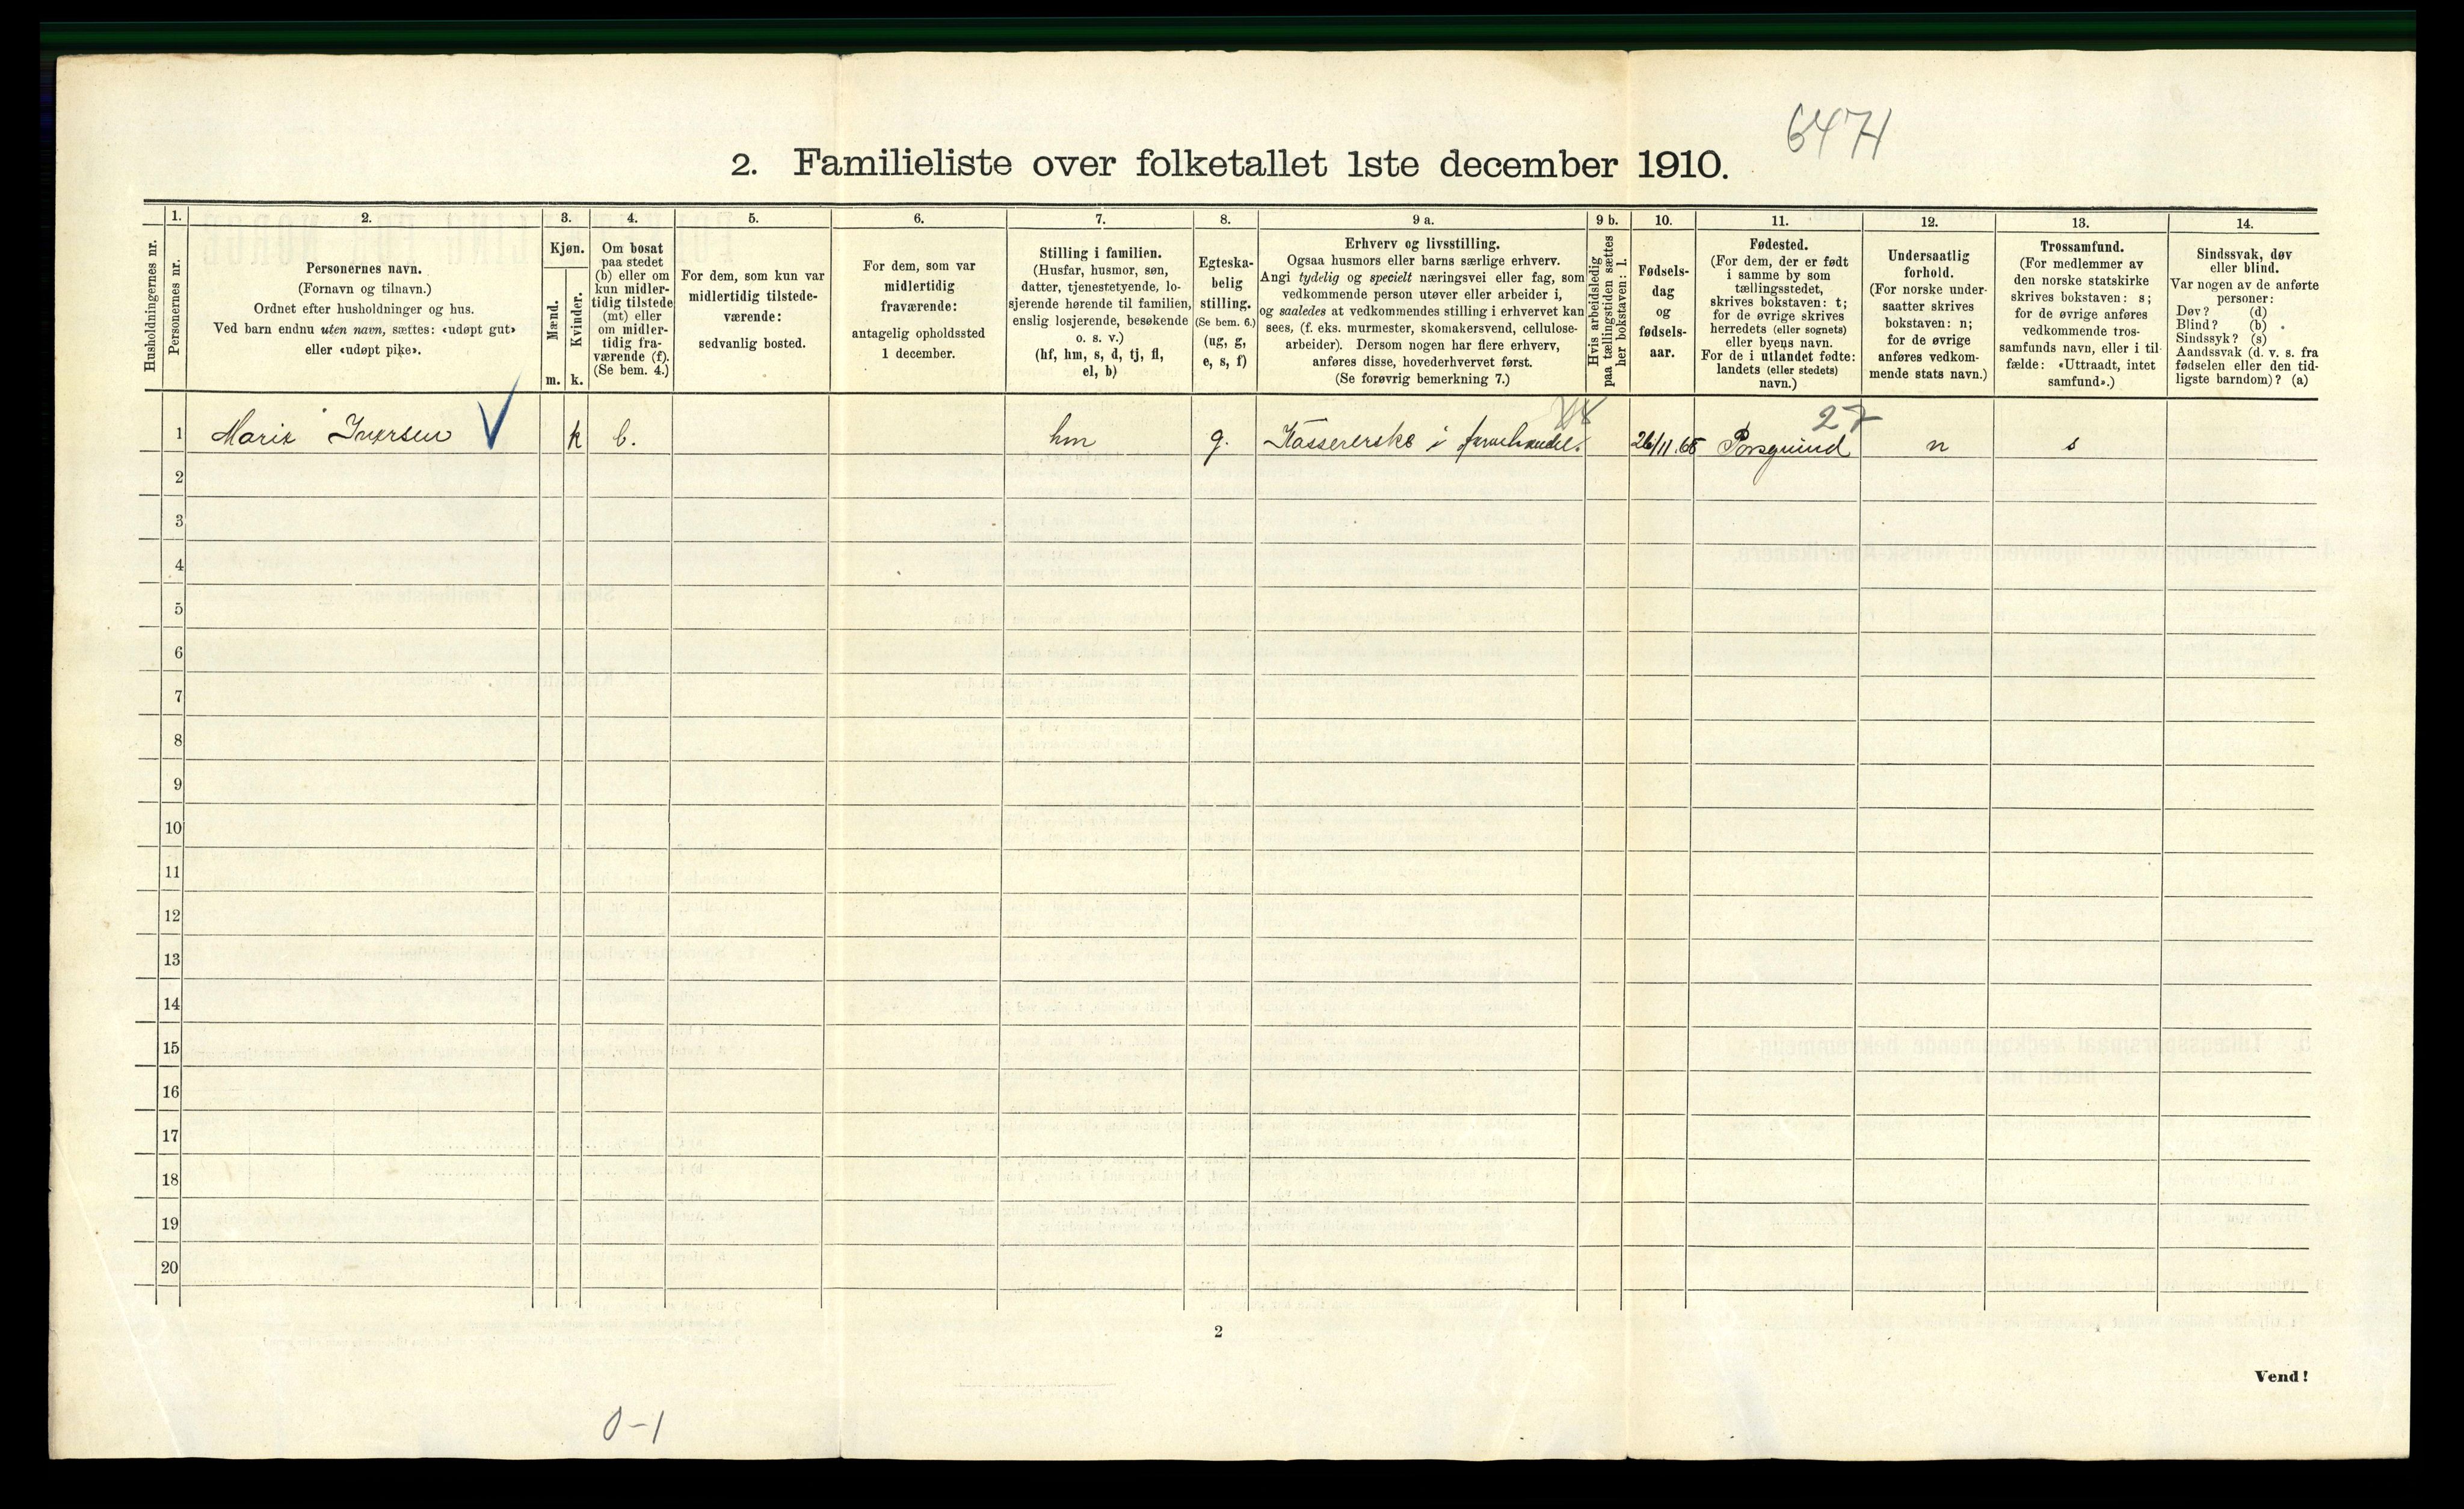 6474
2. Familieliste over folketallet 1ste december 1910.
Husholdningernes nr.
1.
Personernes nr.
2.
Personernes navn.
(Fornavn og tilnavn.)
Ordnet efter husholdninger og hus.
Ved barn endnu uten navn, sættes: «udøpt gut»
eller «udøpt pike».
3.
Kjøn.
Mænd.
Kvinder.
m. k.
4.
Om bosat
paa stedet
(b) eller om
kun midler-
tidig tilstede
(mt) eller
om midler-
tidig fra-
værende (f).
(Se bem. 4.)
5.
For dem, som kun var
midlertidig tilstede-
værende:
sedvanlig bosted.
6.
For dem, som var
midlertidig
fraværende:
antagelig opholdssted
1 december.
7.
Stilling i familien.
(Husfar, husmor, søn,
datter, tjenestetyende, lo-
sjerende hørende til familien,
enslig losjerende, besøkende
o. s. v.)
(hf, hm, s, d, tj, fl,
el, b)
8.
Egteska-
belig
stilling.
(Se bem. 6.)
(ug, g,
e, s, f)
9 a.
Erhverv og livsstilling.
Ogsaa husmors eller barns særlige erhverv.
Angi tydelig og specielt næringsvei eller fag, som
vedkommende person utøver eller arbeider i,
og saaledes at vedkommendes stilling i erhvervet kan
sees, (f. eks. murmester, skomakersvend, cellulose-
arbeider). Dersom nogen har flere erhverv,
anføres disse, hovederhvervet først.
(Se forøvrig bemerkning 7.)
9 b.
Hvis arbeidsledig
paa tællingstiden sættes
her bokstaven: l.
10.
Fødsels-
dag
og
fødsels-
aar.
11.
Fødested.
(For dem, der er født
i samme by som
tællingsstedet,
skrives bokstaven: t;
for de øvrige skrives
herredets (eller sognets)
eller byens navn.
For de i utlandet fødte:
landets (eller stedets)
navn.)
12.
Undersaatlig
forhold.
(For norske under-
saatter skrives
bokstaven: n;
for de øvrige
anføres vedkom-
mende stats navn.)
13.
Trossamfund.
(For medlemmer av
den norske statskirke
skrives bokstaven: s;
for de øvrige anføres
vedkommende tros-
samfunds navn, eller i til-
fælde: «Uttraadt, intet
samfund».)
14.
Sindssvak, døv
eller blind.
Var nogen av de anførte
personer:
Døv? (d)
Blind? (b)
Sindssyk? (s)
Aandssvak (d. v. s. fra
fødselen eller den tid-
ligste barndom)? (a)
27
1 Marie Iversen k b. hm g. Kassererske i farvehandel. 26/11.65 Porsgrund n s
2
3
4
5
6
7
8
9
10
11
12
13
14
15
16
17
18
19
20
2
Vend!
0-1